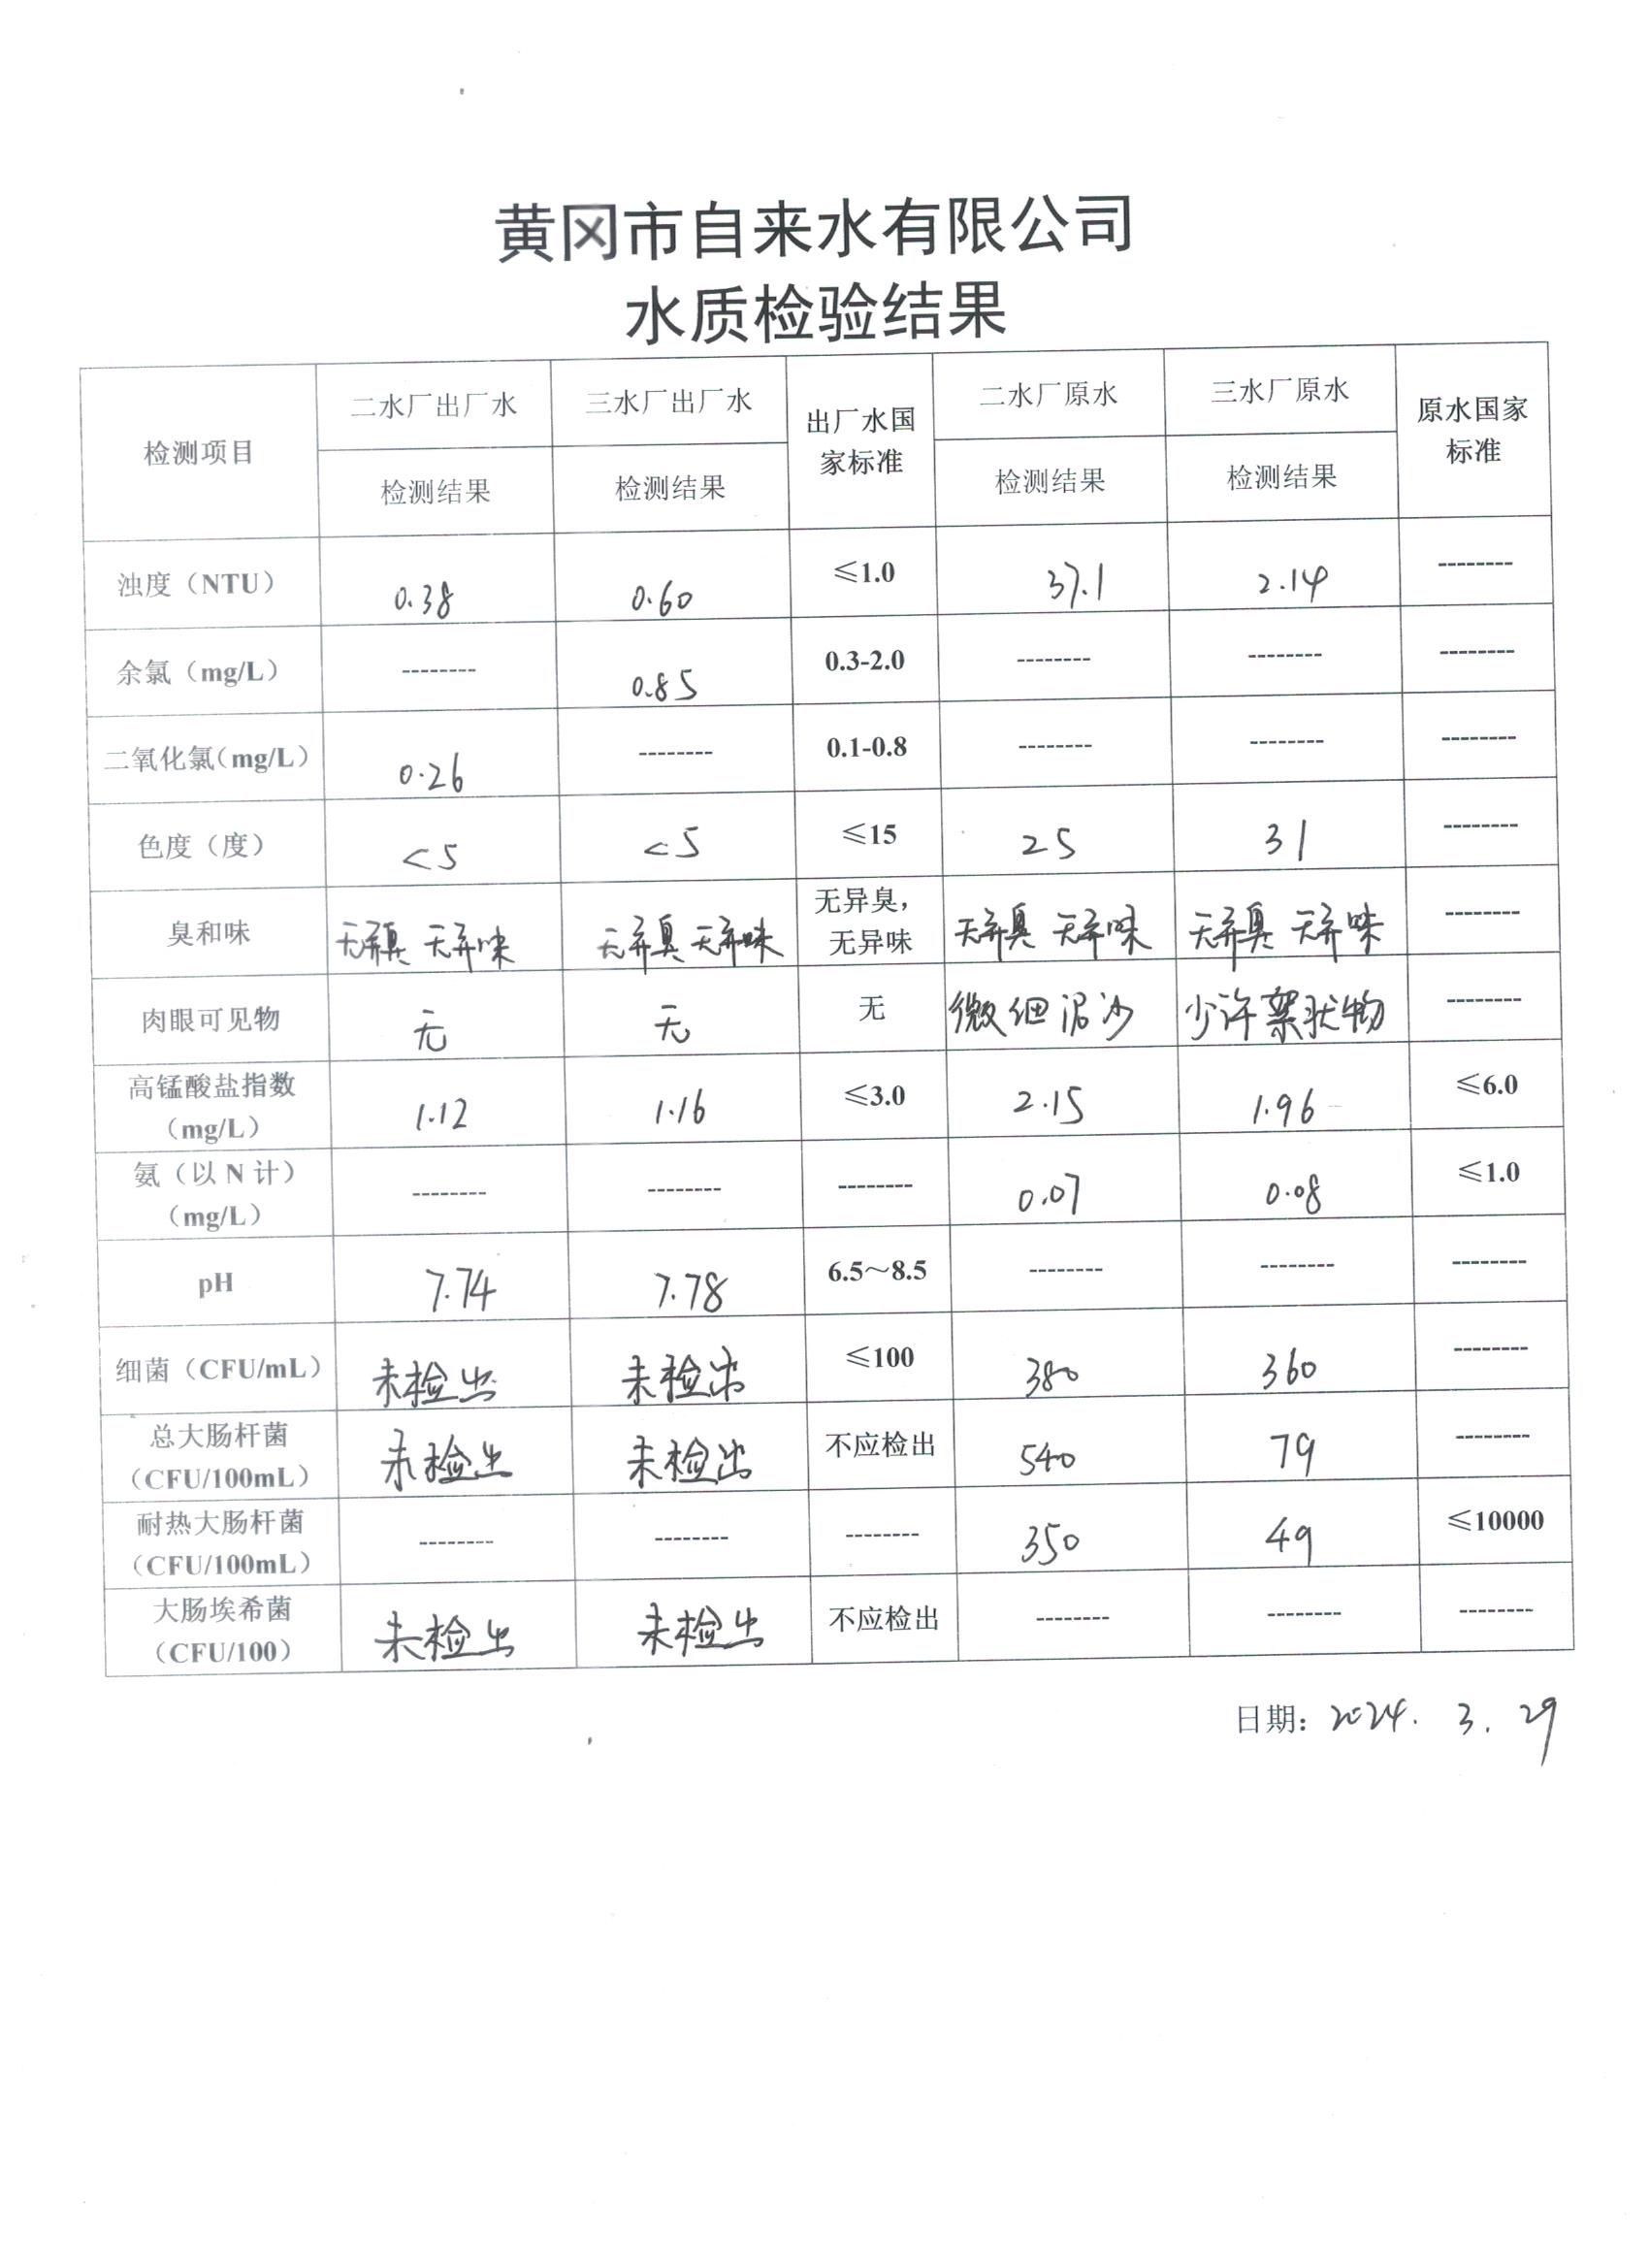 黄冈市自来水有限公司
水质检验结果
检测项目 二水厂出厂水 三水厂出厂水 出厂水国家标准 二水厂原水 三水厂原水 原水国家标准
检测结果 检测结果 检测结果 检测结果
浊度（NTU） 0.38 0.60 ≤1.0 37.1 2.14 --------
余氯（mg/L） -------- 0.85 0.3-2.0 -------- -------- --------
二氧化氯（mg/L） 0.26 -------- 0.1-0.8 -------- -------- --------
色度（度） <5 <5 ≤15 25 31 --------
臭和味 无异臭 无异味 无异臭 无异味 无异臭，无异味 无异臭 无异味 无异臭 无异味 --------
肉眼可见物 无 无 无 微细泥沙 少许絮状物 --------
高锰酸盐指数（mg/L） 1.12 1.16 ≤3.0 2.15 1.96 ≤6.0
氨（以 N 计）（mg/L） -------- -------- -------- 0.07 0.08 ≤1.0
pH 7.74 7.78 6.5～8.5 -------- -------- --------
细菌（CFU/mL） 未检出 未检出 ≤100 380 360 --------
总大肠杆菌（CFU/100mL） 未检出 未检出 不应检出 540 79 --------
耐热大肠杆菌（CFU/100mL） -------- -------- -------- 350 49 ≤10000
大肠埃希菌（CFU/100） 未检出 未检出 不应检出 -------- -------- --------
日期：2024. 3. 29